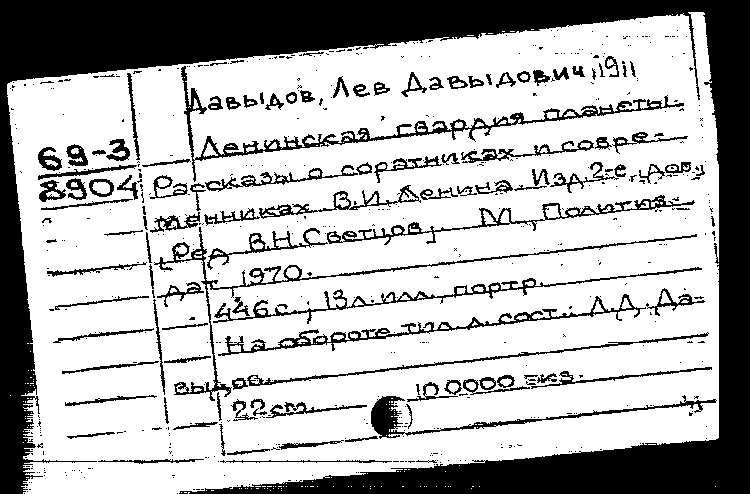 Давыдов, Лев Давыдович, 1911
69-3
8904
Ленинская гвардия планеты.
Рассказы о соратниках и совре-
менниках В.И. Ленина. Изд. 2-е, доп.
[Ред. В.Н. Светцов]. М., Политиз-
дат, 1970.
446 с.; 13 л. илл., портр.
На обороте тит. л. сост.: Л.Д. Да-
выдов.
22 см. 100000 экз.